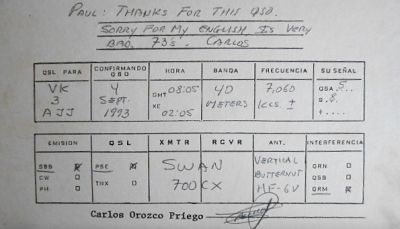 PAUL: THANKS FOR THIS QSO.
SORRY FOR MY ENGLISH IS VERY
BAD. 73's. CARLOS
QSL PARA CONFIRMANDO QSO HORA BANDA FRECUENCIA SU SEÑAL
VK 4 GMT 08:05 40 7,060 QSA 5..
3 SEPT. XE METERS KCS ± S. 8
AJJ 1993 02:05 T....
EMISION QSL XMTR RCVR ANT. INTERFERENCIA
SSB PSE SWAN VERTICAL QRN
CW TNX 700CX BUTTERNUT QSB
PH HF-6V QRM
Carlos Orozco Priego